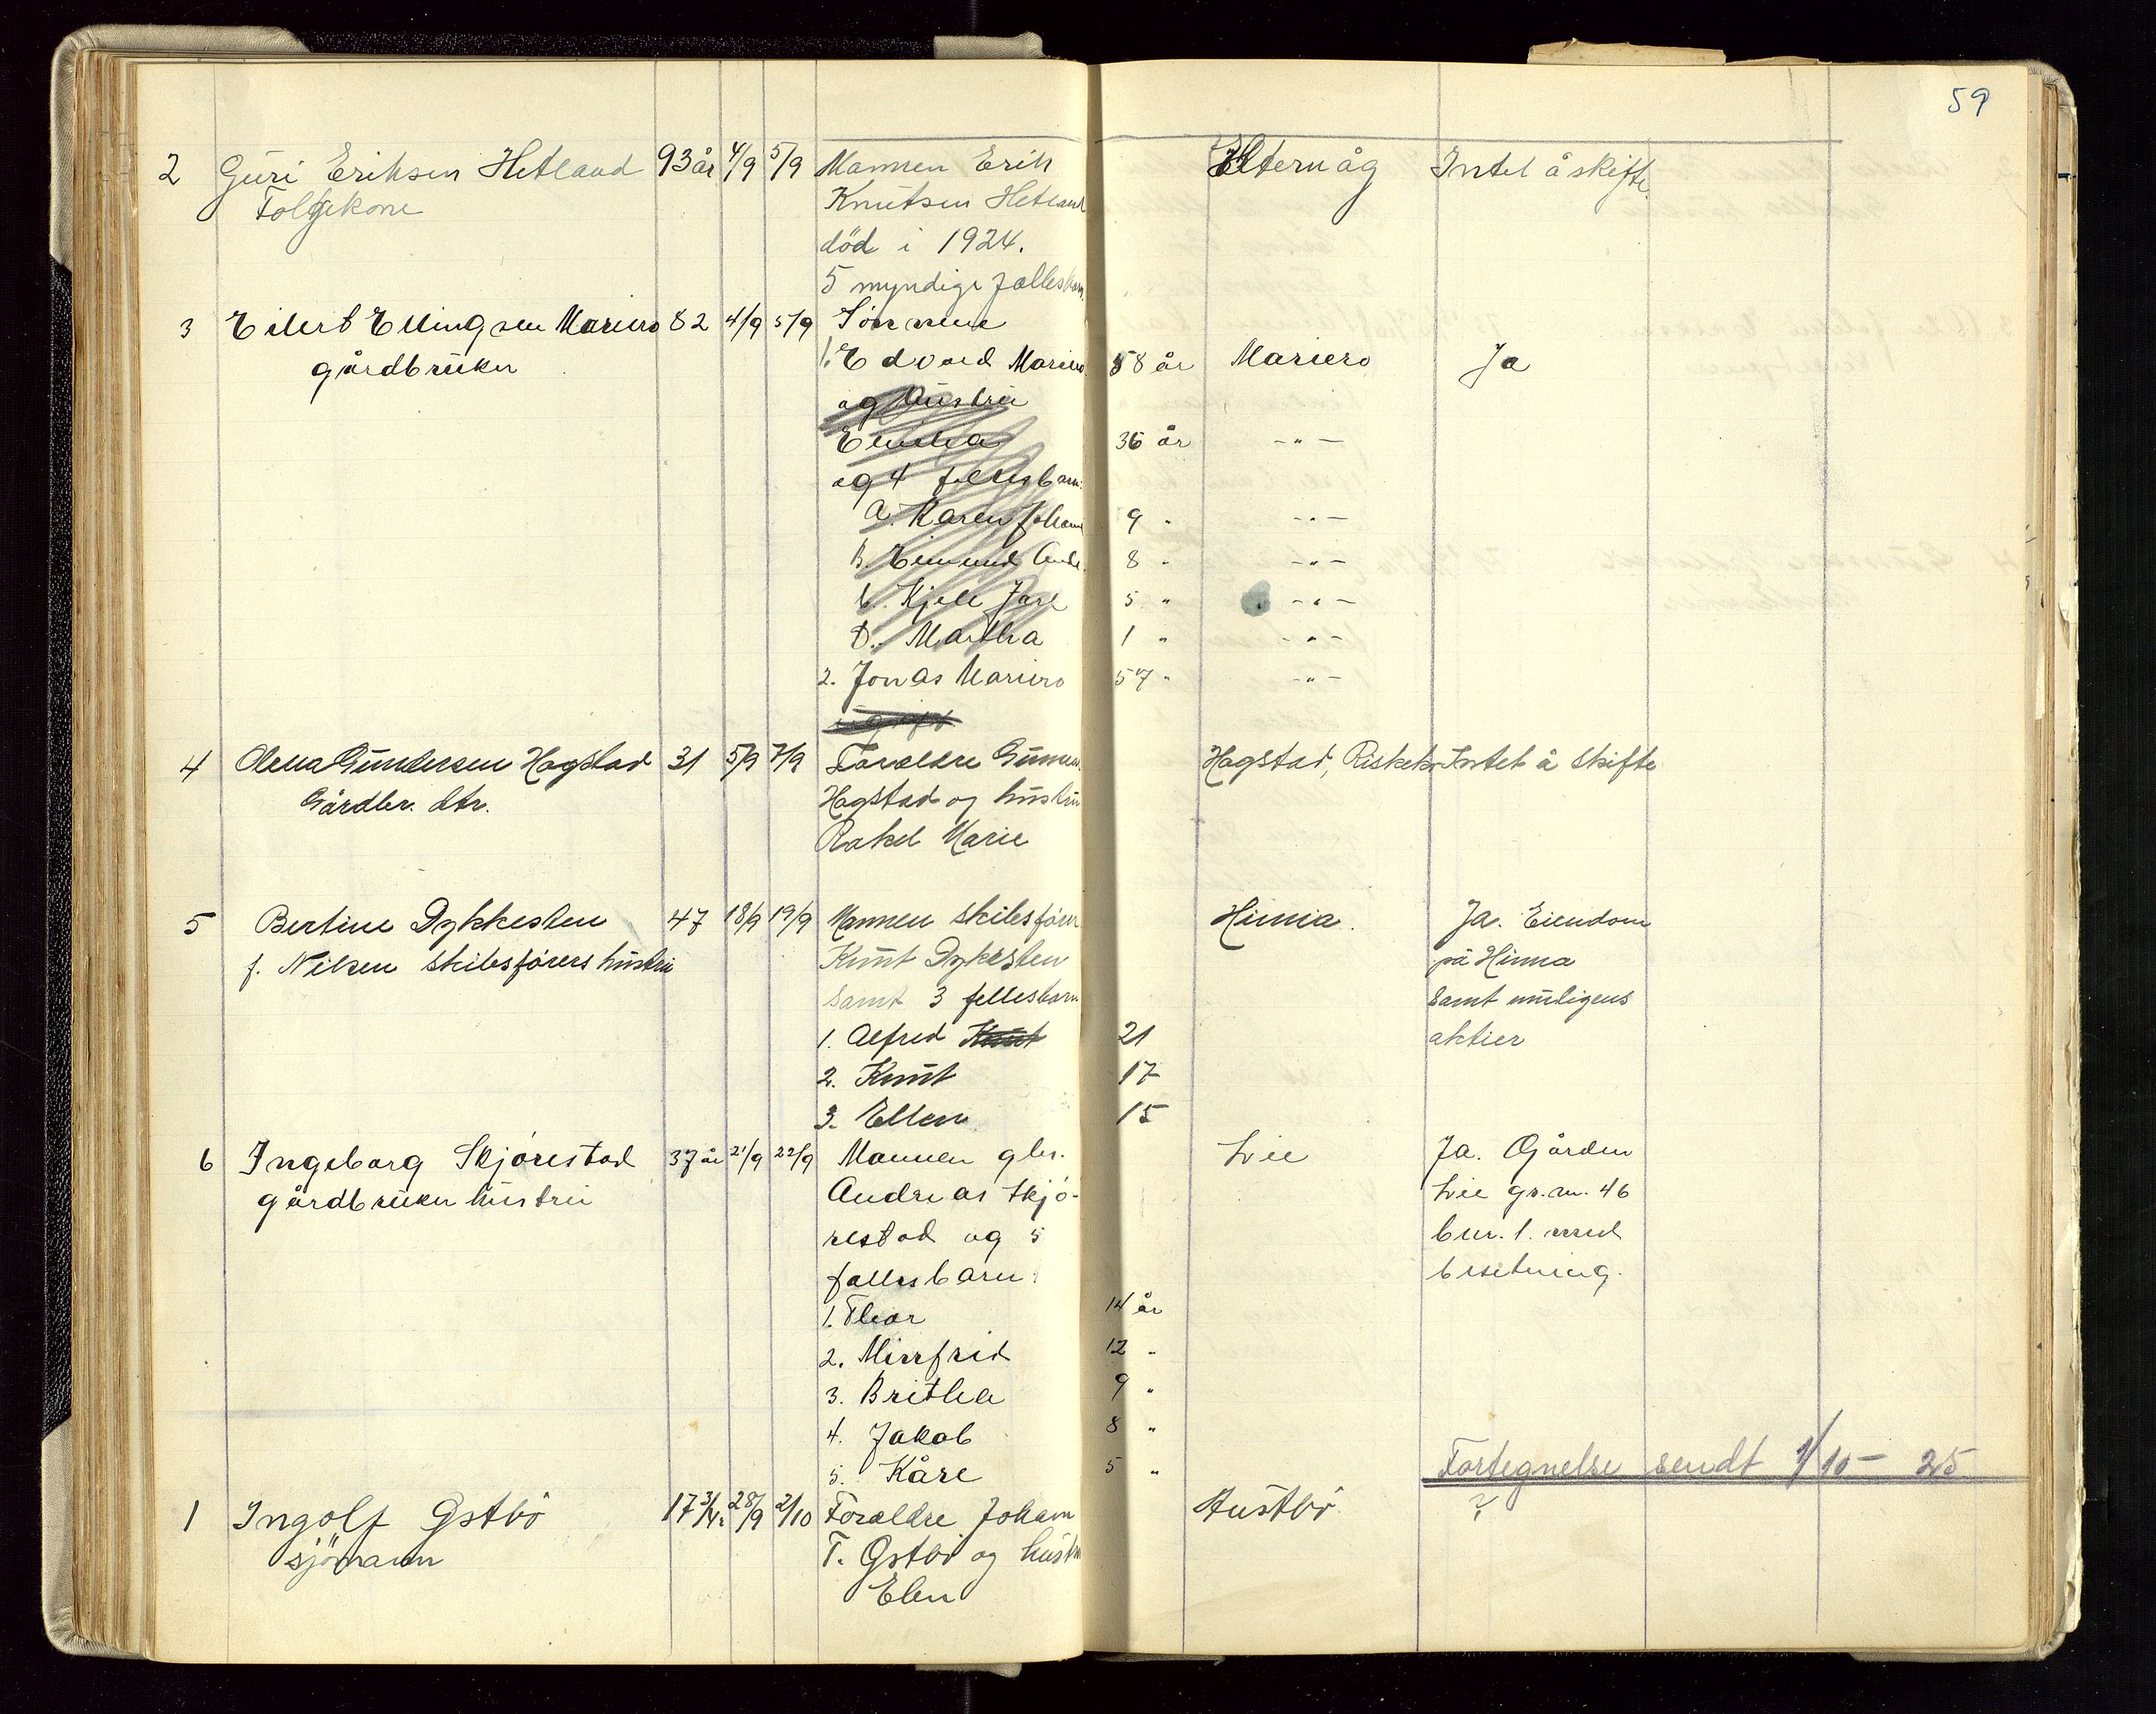 59
2 Guri Eriksen Hetland 93 år 4/9 5/9 Mannen Erik Intet å skifte
Folgekone Knutsen Hetland
död i 1924.
5 myndige fællesbarn.
3 Eilert Ellingsen Mariero 82 4/9 5/9 Sönnene
gårdbruker 1. Edvard Mariero 58 år Mariero Ja
og hustru
36 år -"-
og 4 fellesbarn:
a. Karen Johan 9 " -"-
B. 8 " -"-
C. Kjell 5 " -"-
D. Martha 1 " -"-
2. Jonas Mariero 57 " -"-
ugift
4 Olena Gundersen Hogstad 31 5/9 7/9 Forældre Hogstad, Intet å skifte
Gårdbr. dtr. Hogstad og hustru
Rakel Marie
5 Bertine Dykkesten 47 18/9 19/9 Mannen skibsförer Hinna. Ja. Eiendom
f. Nilsen skibsförers hustru Knut Dykesten på Hinna
samt 3 fellesbarn samt muligens
1. Alfred Knut 21 aktier
2. Knut 17
3. Ellen 15
6 Ingeborg Skjörestad 37 år 21/9 22/9 Mannen gbr. Lie Ja. Gården
gårdbruker hustru Andreas Skjö- Lie gr. nr. 46
restad og 5 bnr. 1. med
fellesbarn: besetning.
1. Thor 14 år
2. Minfrid 12 "
3. Brithe 9 "
4. Jakob 8 "
5. Kåre 5 "
Fortegnelse sendt 1/10 - 25
1 Ingolf Østbö 17 3/4 28/9 2/10 Forældre Johan Austbö ?
sjömann T. Østbö og hustru
Elen